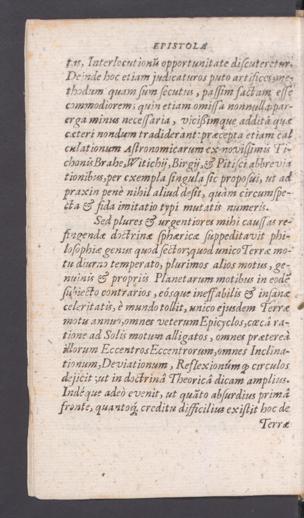 EPISTOLÆ
tur, Interlocutionū opportunitate discuteretur.
Deinde hoc etiam judicaturos puto artifices, me-
thodum quam sum secutus, passim factam esse
commodiorem; quin etiam omissa nonnulla par-
erga minus necessaria, vicissimque addita quæ
cæteri nondum tradiderant: præcepta etiam cal
culationum Astronomicarum ex novissimis Ti-
chonis Brahe, Witichij, Birgij, & Pitisci abbrevia
tionibus, per exempla singula sic proposui, ut ad
praxin penè nihil aliud desit, quàm circumspe-
cta & fida imitatio typi mutatis numeris.
Sed plures & urgentiores mihi caussas re-
fingendæ doctrinæ sphæricæ suppeditavit phi-
losophiæ genus quod sector: quod unico Terræ mo-
tu diurno temperato, plurimos alios motus, ge-
nuinis & propriis Planetarum motibus in eodē
subiecto contrarios, eósque ineffabilis & insanæ
celeritatis, è mundo tollit, unico ejusdem Terræ
motu annuo, omnes veterum Epicyclos, cæcâ ra-
tione ad Solis motum alligatos, omnes præterea
illorum Eccentros Eccentrorum, omnes Inclina-
tionum, Deviationum, Reflexionumq; circulos
dejicit: ut in doctrinâ Theoricâ dicam amplius.
Indéque adeò evenit, ut quāto absurdius primâ
fronte, quantoq; creditu difficilius existit hoc de
Terræ